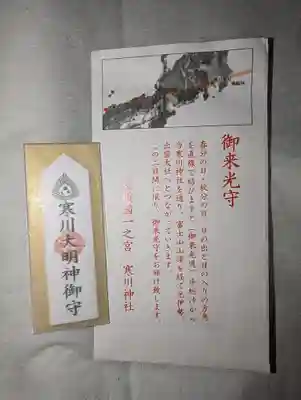 御来光守
春分の日・秋分の日 日の出と日の入りの方角
を直線で結びますと
寒川神社を通り、富士山
出雲大社へとつながっています。
この二日間に限り、御来光守をお頒け致します。
相模國一之宮 寒川神社
寒川大明神御守